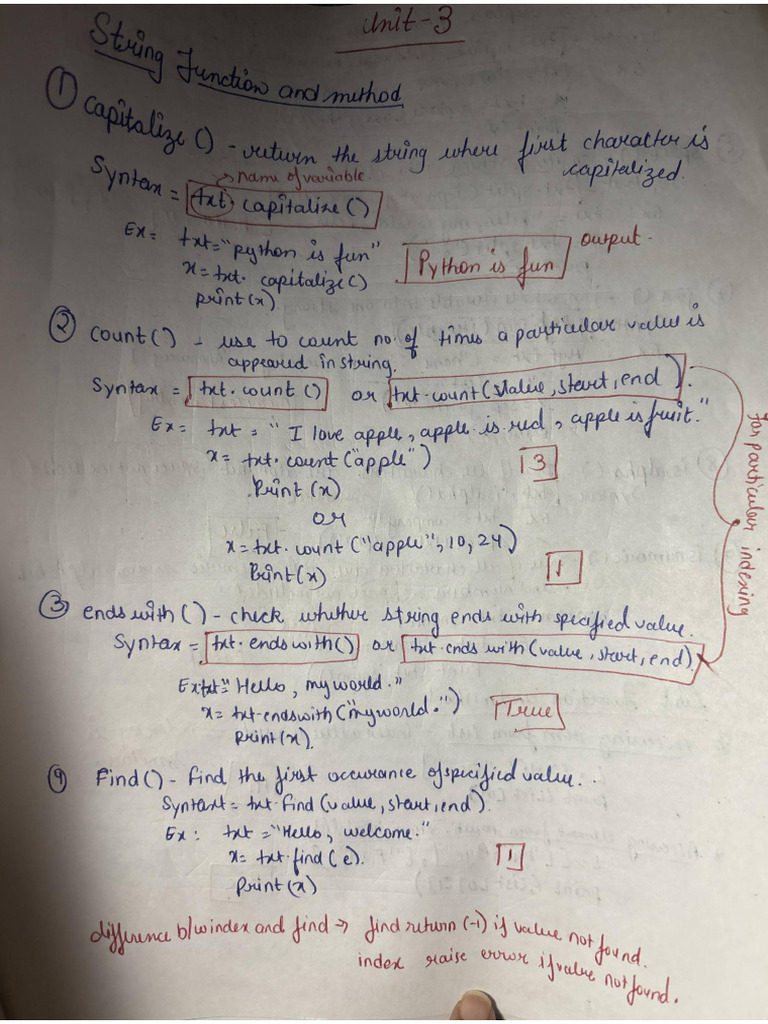 Unit-3
String Function and method
① capitalize() - return the string where first character is capitalized.
→ name of variable
Syntax = txt. capitalize()
Ex= txt="python is fun"
Python is fun output.
x=txt. capitalize()
print(x)
② count() - use to count no. of times a particular value is
appeared in string.
Syntax = txt.count () or txt.count(value, start, end).
Ex= txt = "I love apple, apple is red, apple is fruit."
x= txt.count("apple") 3
Print (x)
or
x=txt.count ("apple", 10, 24)
Print(x) 1
for particular indexing
③ ends with () - check whether string ends with specified value.
Syntax = txt.endswith() or txt.ends with (value, start, end)
Ex: txt= "Hello, my world."
x= txt.endswith("my world.") True
print(x).
④ Find() - find the first occurance of specified value.
Syntaxt= txt.find (value, start, end).
Ex: txt ="Hello, welcome."
x= txt.find(e). 1
print(x)
difference b/w index and find → find return (-1) if value not found.
index raise error if value not found.